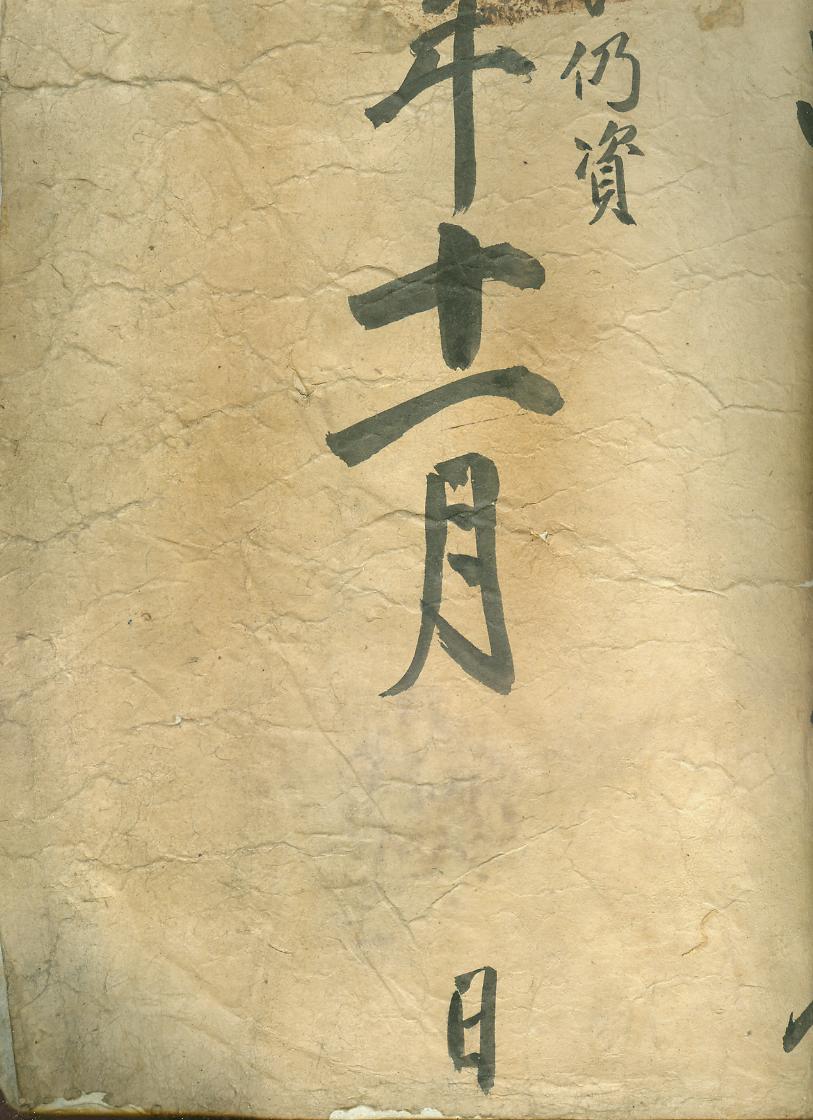 仍資
年十一月 日